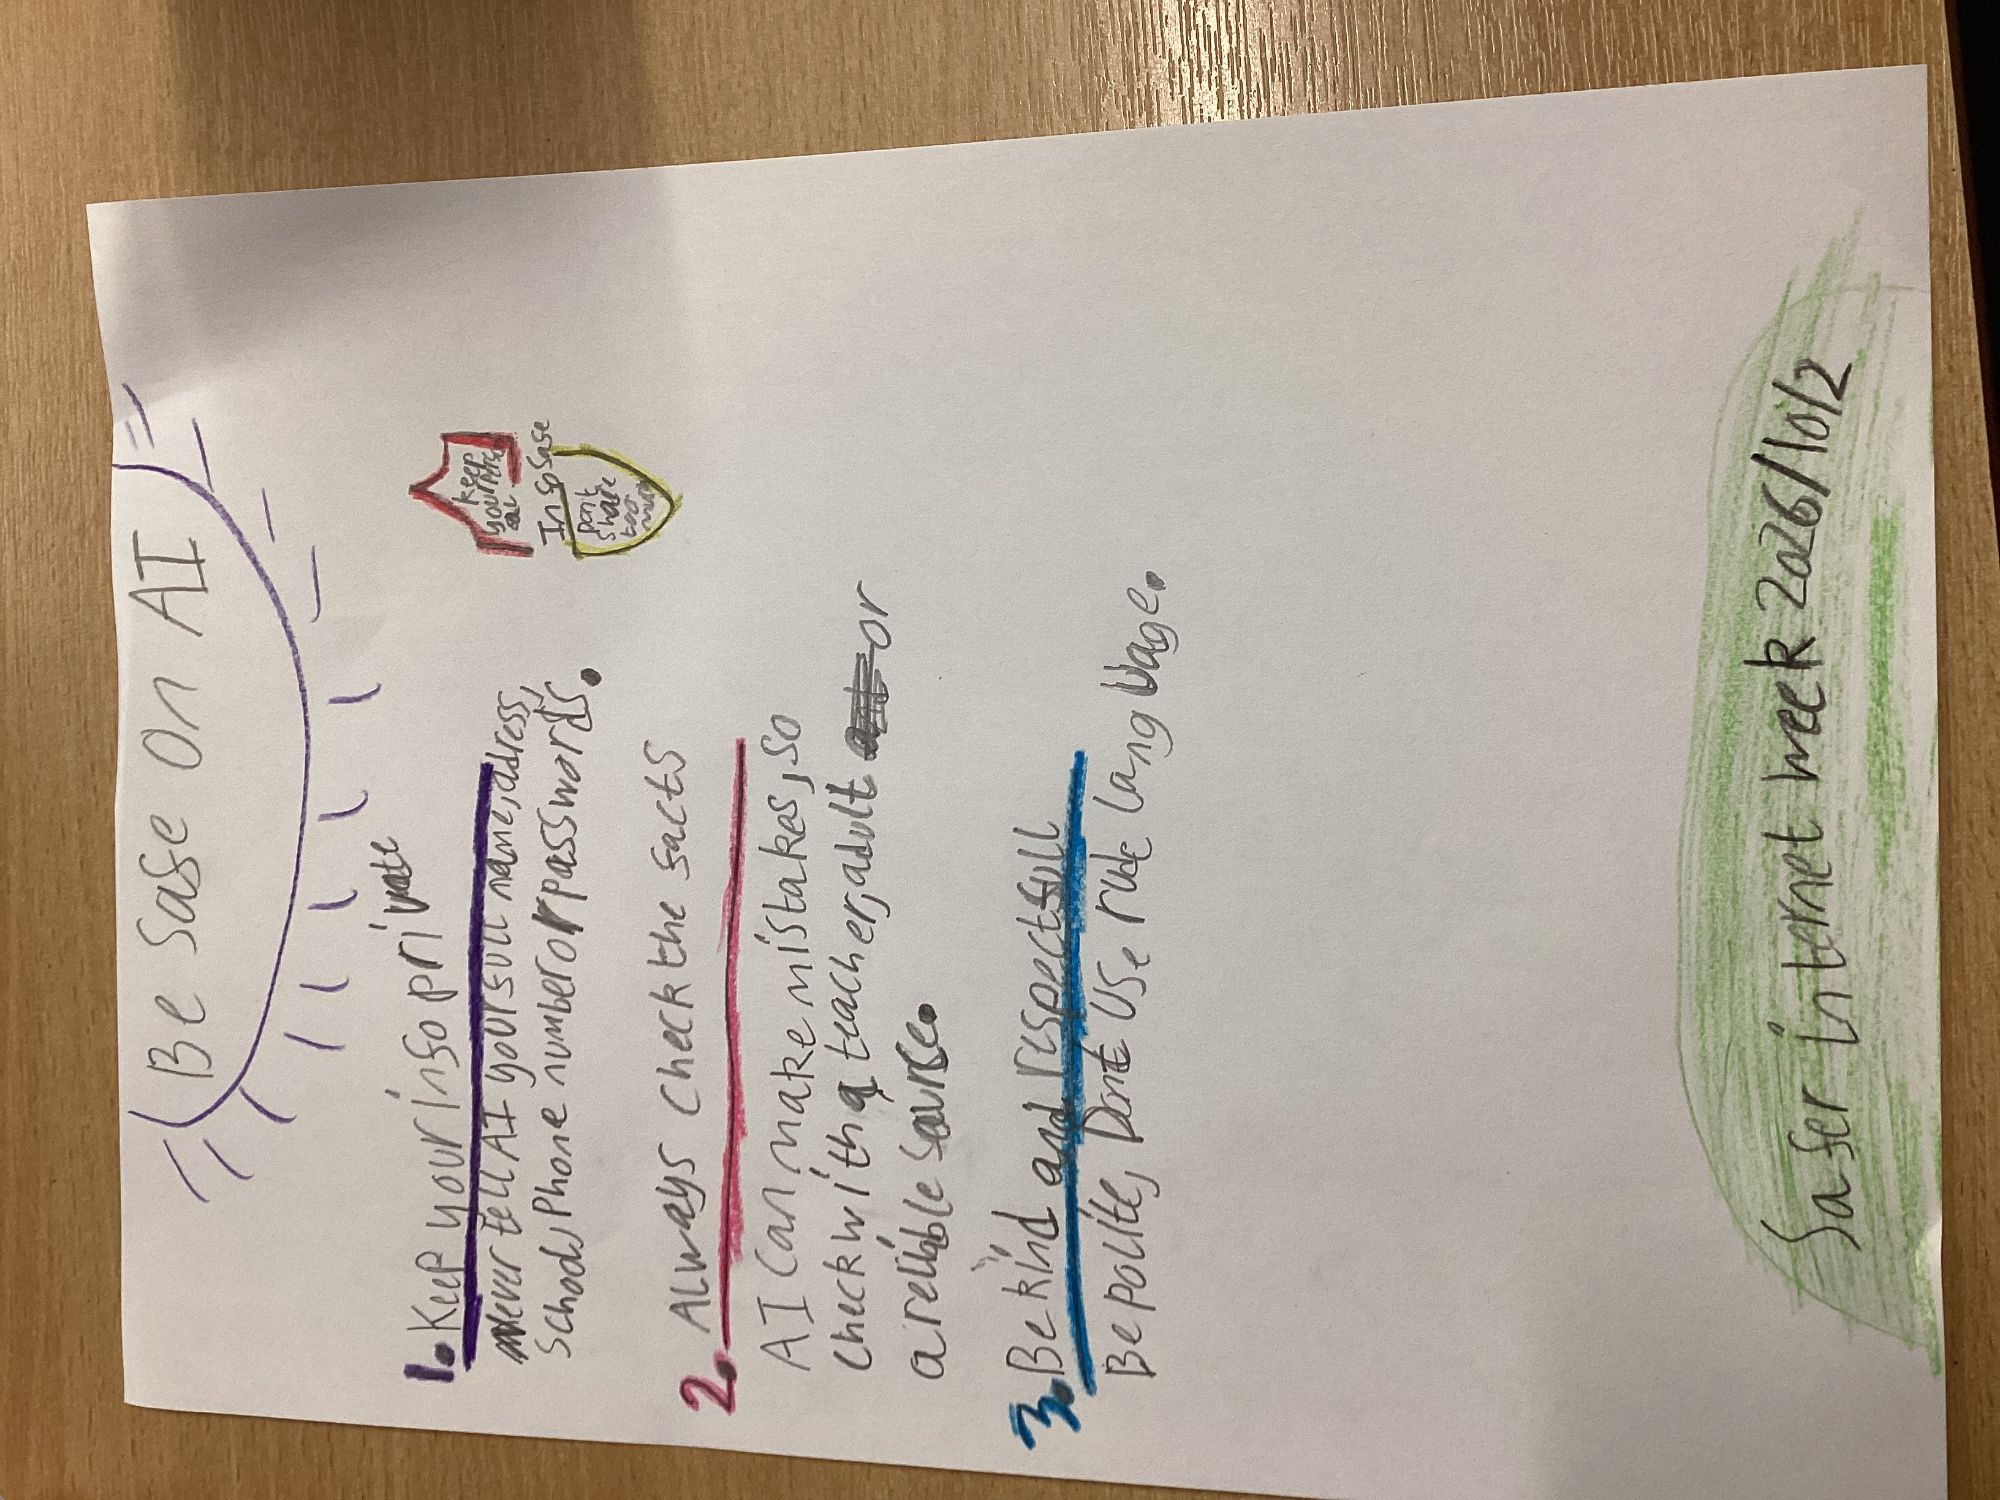 Be Safe On AI
1. Keep your info private
never tell AI your full name, adress,
School, Phone number or passwords.
keep
your
Info Safe
Don't
share
too
much
2. Always Check the facts
AI Can make mistakes, so
Check with a teacher, adult or
a relible source.
3. Be kind and respectfull
Be polite, Dont Use rude language.
Safer internet week 2026/10/2